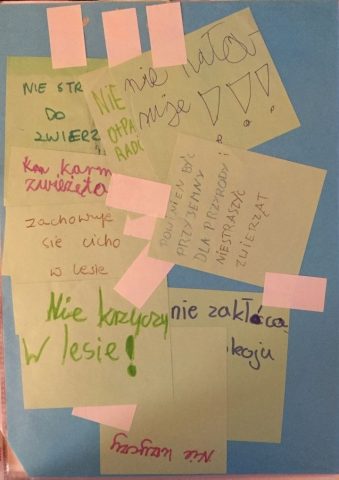 NIE STR
DO
ZWIERZ
NIE
OHPA
RADI
nie
kam karm
zwierzęta
zachowuje
się cicho
w lesie
POWINIEN BYĆ
PRZYJEMNY
DLA PRZYRODY I
NIESTRASZYĆ
ZWIERZĄT
Nie krzyczy
w lesie!
nie zakłóca
okoju
Nie krzyczy